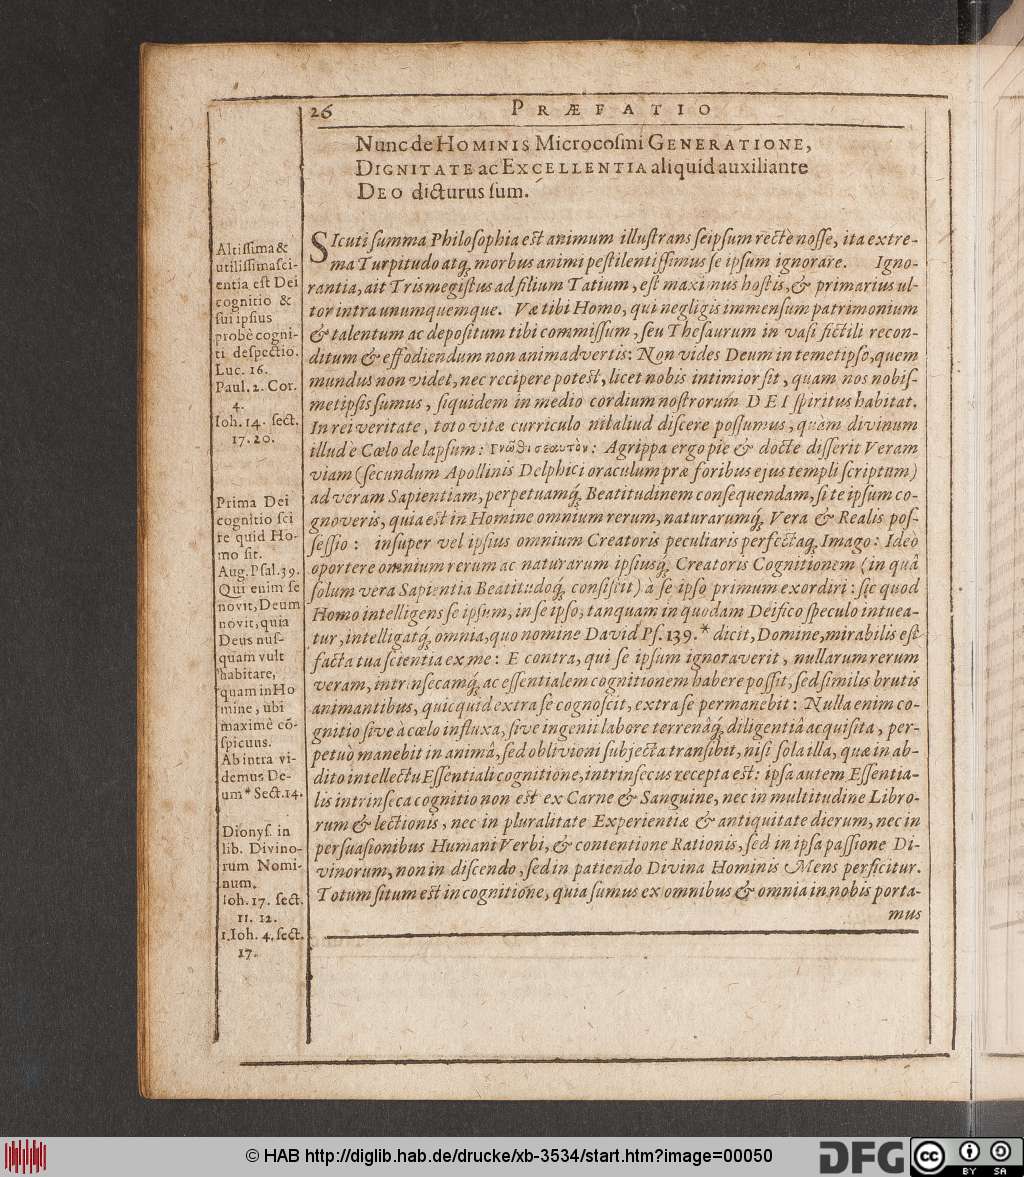 26 PRÆFATIO
Nunc de HOMINIS Microcoſmi GENERATIONE,
DIGNITATE ac EXCELLENTIA aliquid auxiliante
DEO dicturus ſum.
SIcuti ſumma Philoſophia eſt animum illuſtrans ſeipſum rectè noſſe, ita extre-
ma Turpitudo atq́; morbus animi peſtilentiſſimus ſe ipſum ignorare. Igno-
rantia, ait Trismegiſtus ad filium Tatium, eſt maximus hoſtis, & primarius ul-
tor intra unumquemque. Væ tibi Homo, qui negligis immenſum patrimonium
& talentum ac depoſitum tibi commiſſum, ſeu Theſaurum in vaſi fictili recon-
ditum & effodiendum non animadvertis: Non vides Deum in temetipſo, quem
mundus non videt, nec recipere poteſt, licet nobis intimior ſit, quam nos nobiſ-
metipſis ſumus, ſiquidem in medio cordium noſtrorum DEI ſpiritus habitat.
In rei veritate, toto vitæ curriculo nil aliud diſcere poſſumus, quàm divinum
illud è Cœlo delapſum: Γνῶθι σεαυτὸν: Agrippa ergo pie & docte diſſerit Veram
viam (ſecundum Apollinis Delphici oraculum præ foribus ejus templi ſcriptum)
ad veram Sapientiam, perpetuamq́; Beatitudinem conſequendam, ſi te ipſum co-
gnoveris, quia eſt in Homine omnium rerum, naturarumq́; Vera & Realis poſ-
ſeſſio: inſuper vel ipſius omnium Creatoris peculiaris perfectaq; Imago: Ideò
oportere omnium rerum ac naturarum ipſiusq́; Creatoris Cognitionem (in quâ
ſolum vera Sapientia Beatitudoq́; conſiſtit) à ſe ipſo primum exordiri: ſic quod
Homo intelligens ſe ipſum, in ſe ipſo, tanquam in quodam Deifico ſpeculo intuea-
tur, intelligatq́; omnia, quo nomine David Pſ. 139.* dicit, Domine, mirabilis eſt
facta tua ſcientia ex me: E contra, qui ſe ipſum ignoraverit, nullarum rerum
veram, intrinſecamq́; ac eſſentialem cognitionem habere poſſit, ſed ſimilis brutis
animantibus, quicquid extra ſe cognoſcit, extra ſe permanebit: Nulla enim co-
gnitio ſive à cœlo influxa, ſive ingenii labore terrenâq́; diligentiâ acquiſita, per-
petuò manebit in animâ, ſed oblivioni ſubjecta tranſibit, niſi ſola illa, quæ in ab-
dito intellectu Eſſentiali cognitione, intrinſecus recepta eſt: ipſa autem Eſſentia-
lis intrinſeca cognitio non eſt ex Carne & Sanguine, nec in multitudine Libro-
rum & lectionis, nec in pluralitate Experientiæ & antiquitate dierum, nec in
perſuaſionibus Humani Verbi, & contentione Rationis, ſed in ipſa paſſione Di-
vinorum, non in diſcendo, ſed in patiendo Divina Hominis Mens perficitur.
Totum ſitum eſt in cognitione, quia ſumus ex omnibus & omnia in nobis porta-
mus
Altiſſima &
utiliſſima ſci-
entia eſt Dei
cognitio &
ſui ipſius
probè cogni-
ti deſpectio.
Luc. 16.
Paul. 2. Cor.
4.
Ioh. 14. ſect.
17. 20.
Prima Dei
cognitio ſci
re quid Ho-
mo ſit.
Aug. Pſal. 39.
Qui enim ſe
novit, Deum
novit, quia
Deus nuſ-
quam vult
habitare,
quam in Ho
mine, ubi
maximè cō-
ſpicuus.
Ab intra vi-
demus De-
um * Sect. 14.
Dionyſ. in
lib. Divino-
rum Nomi-
num.
Ioh. 17. ſect.
11. 12.
1. Ioh. 4. ſect.
17.
© HAB http://diglib.hab.de/drucke/xb-3534/start.htm?image=00050
DFG
cc BY SA